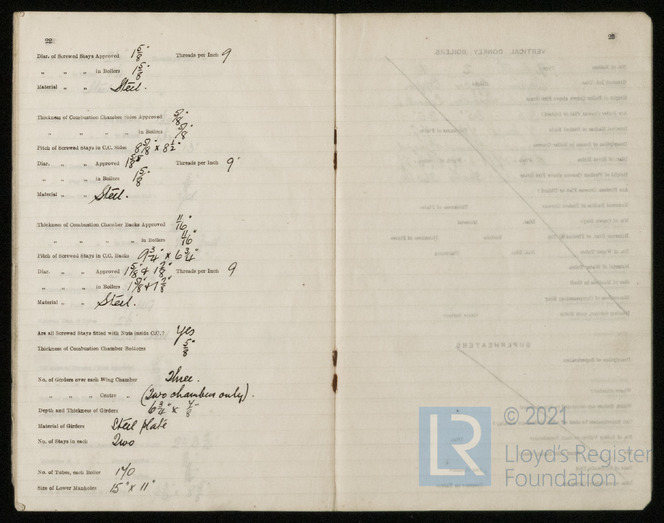 22
Diar. of Screwed Stays Approved 1 5/8" Threads per Inch 9
„ „ „ in Boilers 1 5/8"
Material „ „ Steel.
Thickness of Combustion Chamber Sides Approved 5/8"
„ „ „ „ in Boilers 5/8"
Pitch of Screwed Stays in C.C. Sides 8 5/8" × 8 1/2"
Diar. „ „ Approved 1 5/8" Threads per Inch 9
„ „ „ in Boilers 1 5/8"
Material „ „ Steel.
Thickness of Combustion Chamber Backs Approved 11/16"
„ „ „ „ in Boilers 11/16"
Pitch of Screwed Stays in C.C. Backs 9 3/4" × 6 3/4"
Diar. „ „ Approved 1 5/8" & 1 7/8" Threads per Inch 9
„ „ „ in Boilers 1 5/8" & 1 7/8"
Material „ „ Steel.
Are all Screwed Stays fitted with Nuts inside C.C.? Yes
Thickness of Combustion Chamber Bottoms 5/8"
No. of Girders over each Wing Chamber Three.
„ „ „ Centre „ (Two chambers only).
Depth and Thickness of Girders 6 3/4" ×
Material of Girders Steel plate
No. of Stays in each Two
No. of Tubes, each Boiler 170
Size of Lower Manholes 15" × 11"
23
© 2021
LR
Lloyd's Register
Foundation